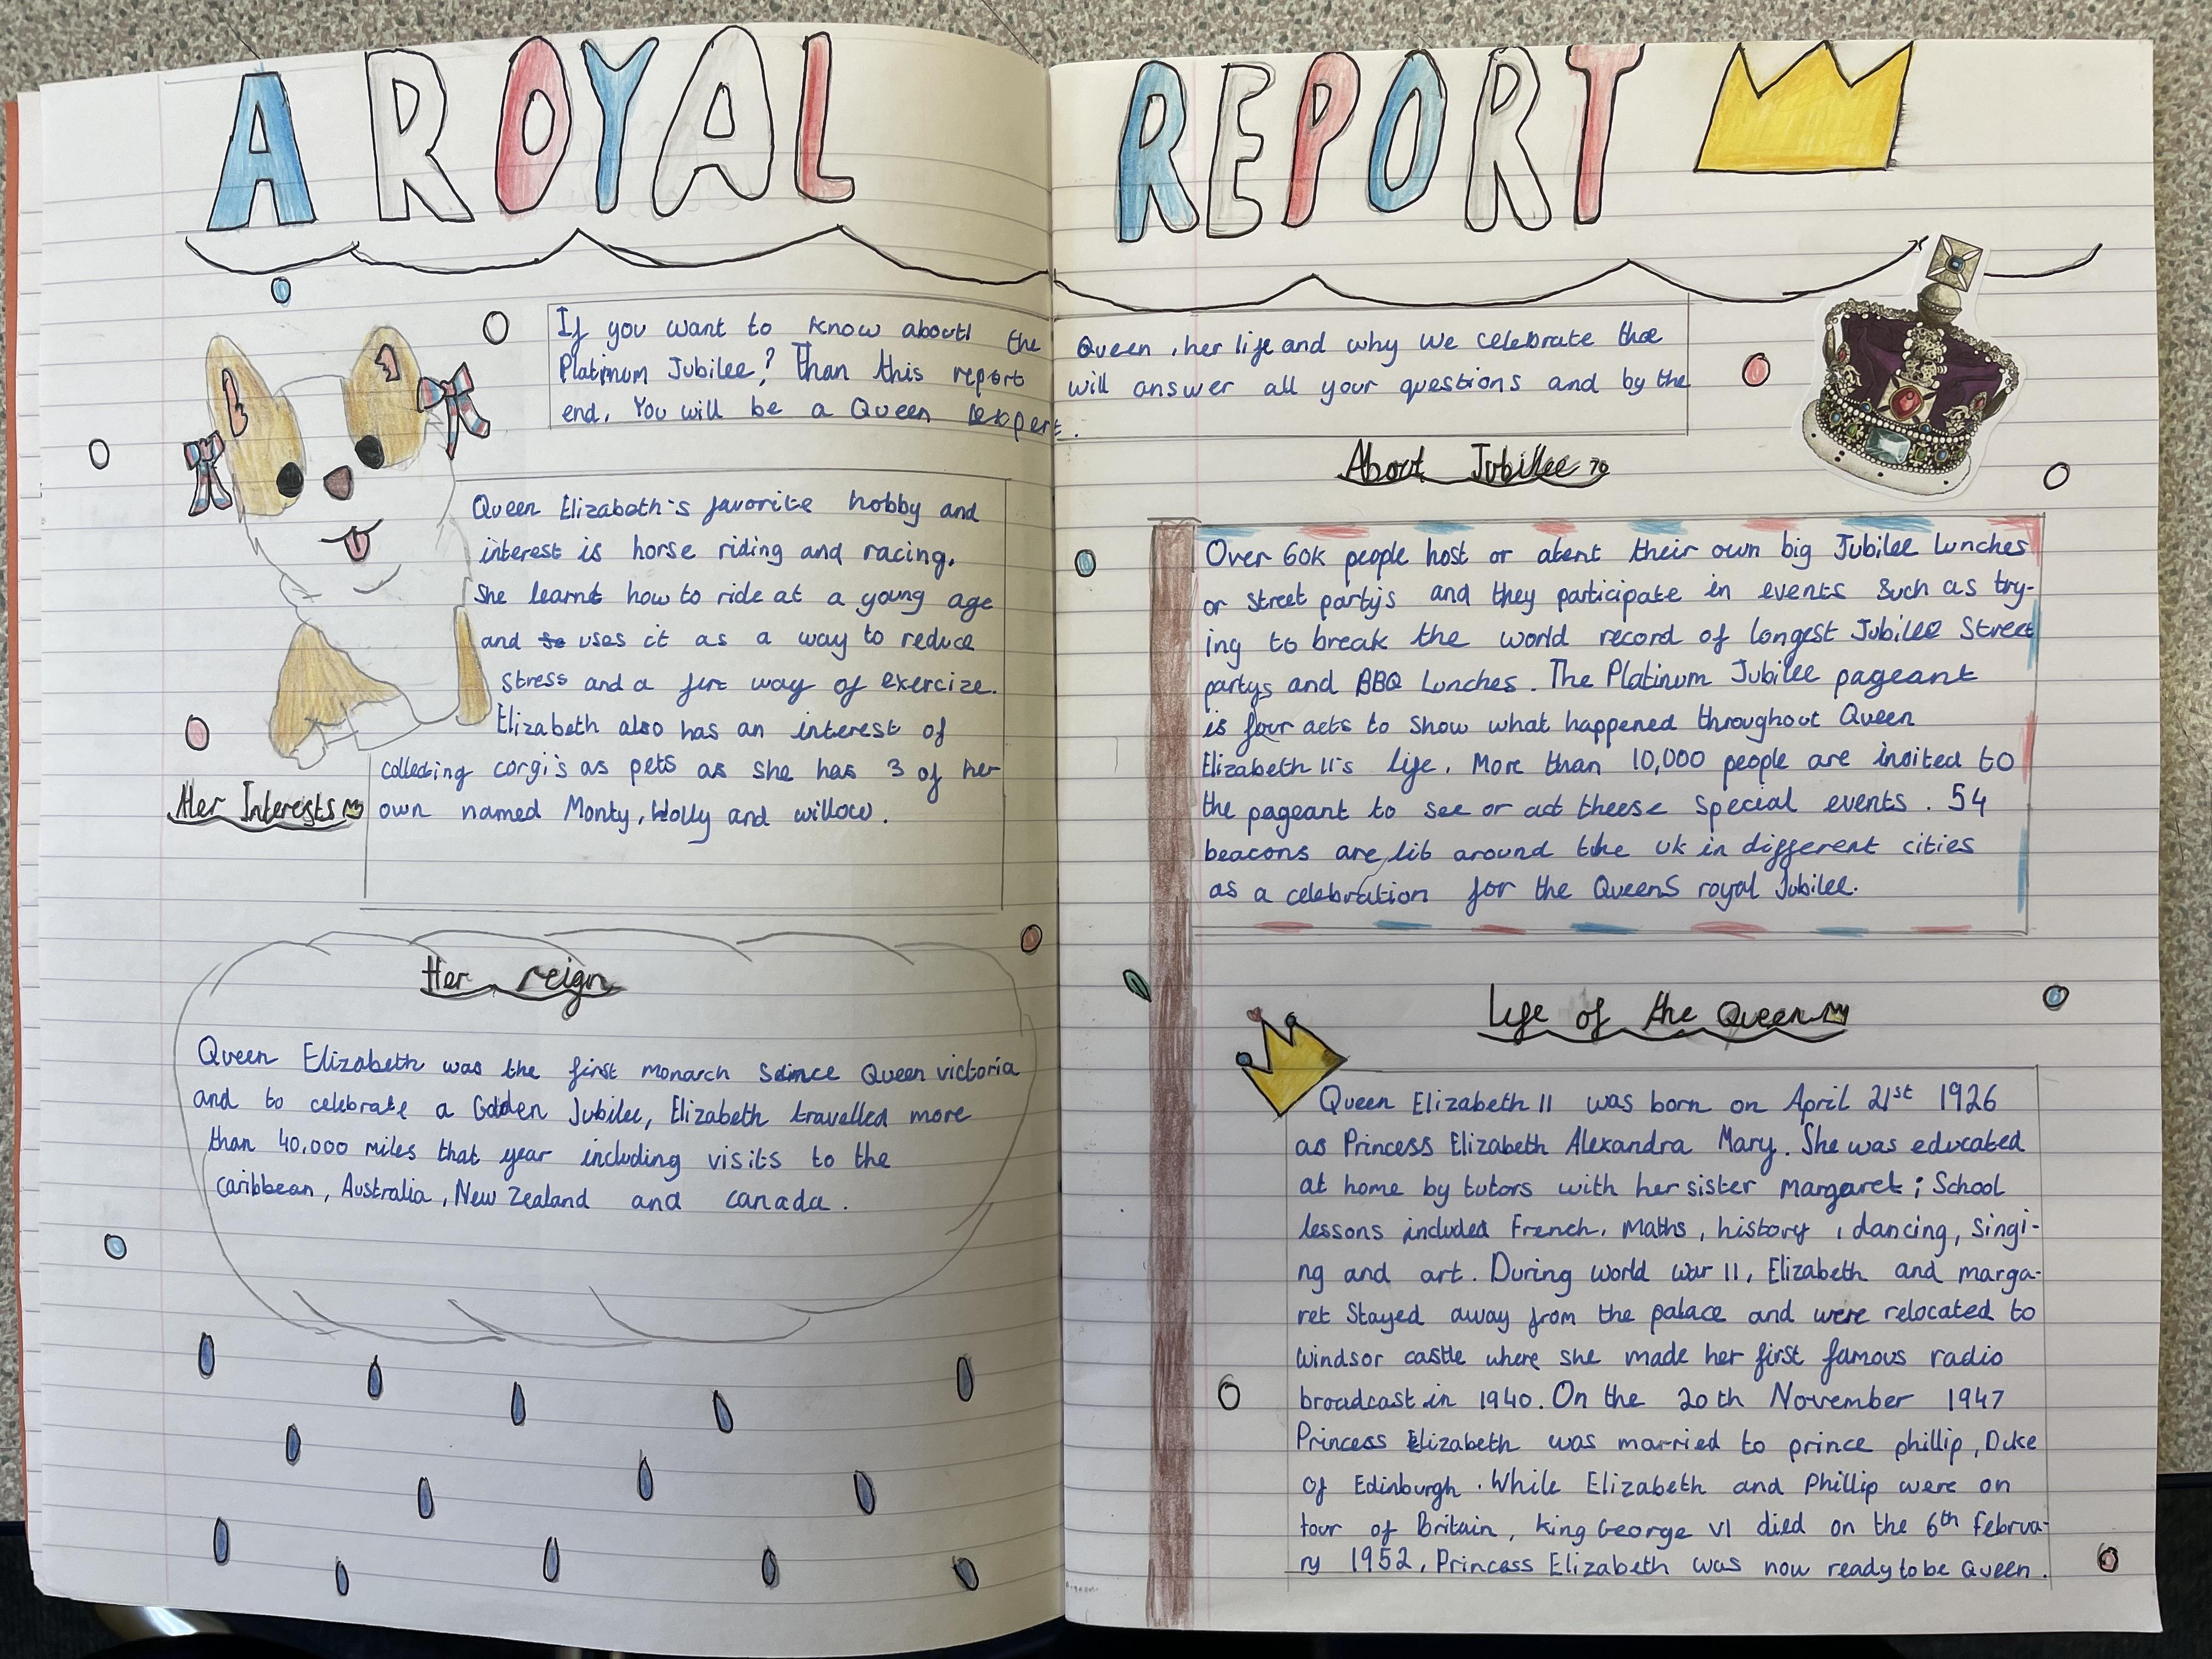 A ROYAL REPORT
If you want to know about the Queen, her life and why we celebrate the
Platinum Jubilee? Than this report will answer all your questions and by the
end, You will be a Queen expert.
Queen Elizabeth's favorite hobby and
interest is horse riding and racing.
She learnt how to ride at a young age
and uses it as a way to reduce
stress and a way of exercize.
Elizabeth also has an interest of
collecting corgi's as pets as she has 3 of her
own named Monty, Holly and willow.
Her Interests
Her reign
Queen Elizabeth was the first monarch since Queen victoria
and to celebrate a Golden Jubilee, Elizabeth travelled more
than 40,000 miles that year including visits to the
caribbean, Australia, New Zealand and canada.
About Jubilee 70
Over 60k people host or atent their own big Jubilee Lunches
or street party's and they participate in events such as try-
ing to break the world record of longest Jubilee Street
partys and BBQ Lunches. The Platinum Jubilee pageant
is four acts to show what happened throughout Queen
Elizabeth II's life. More than 10,000 people are invited to
the pageant to see or act theese special events. 54
beacons are lit around the uk in different cities
as a celebration for the Queens royal Jubilee.
Life of the Queen
Queen Elizabeth II was born on April 21st 1926
as Princess Elizabeth Alexandra Mary. She was educated
at home by tutors with her sister margaret; School
lessons included French, Maths, history, dancing, singi-
ng and art. During world war II, Elizabeth and marga-
ret stayed away from the palace and were relocated to
windsor castle where she made her first famous radio
broadcast in 1940. On the 20th November 1947
Princess Elizabeth was married to prince phillip, Duke
Of Edinburgh. While Elizabeth and Phillip were on
tour of Britain, king George VI died on the 6th Februa-
ry 1952, Princess Elizabeth was now ready to be Queen.